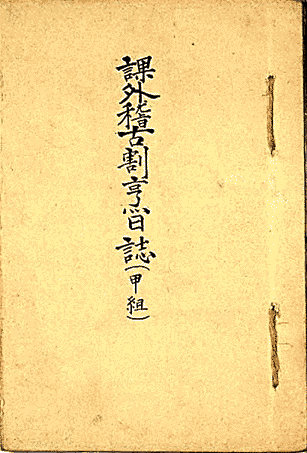 課外稽古割亨日誌(甲組)